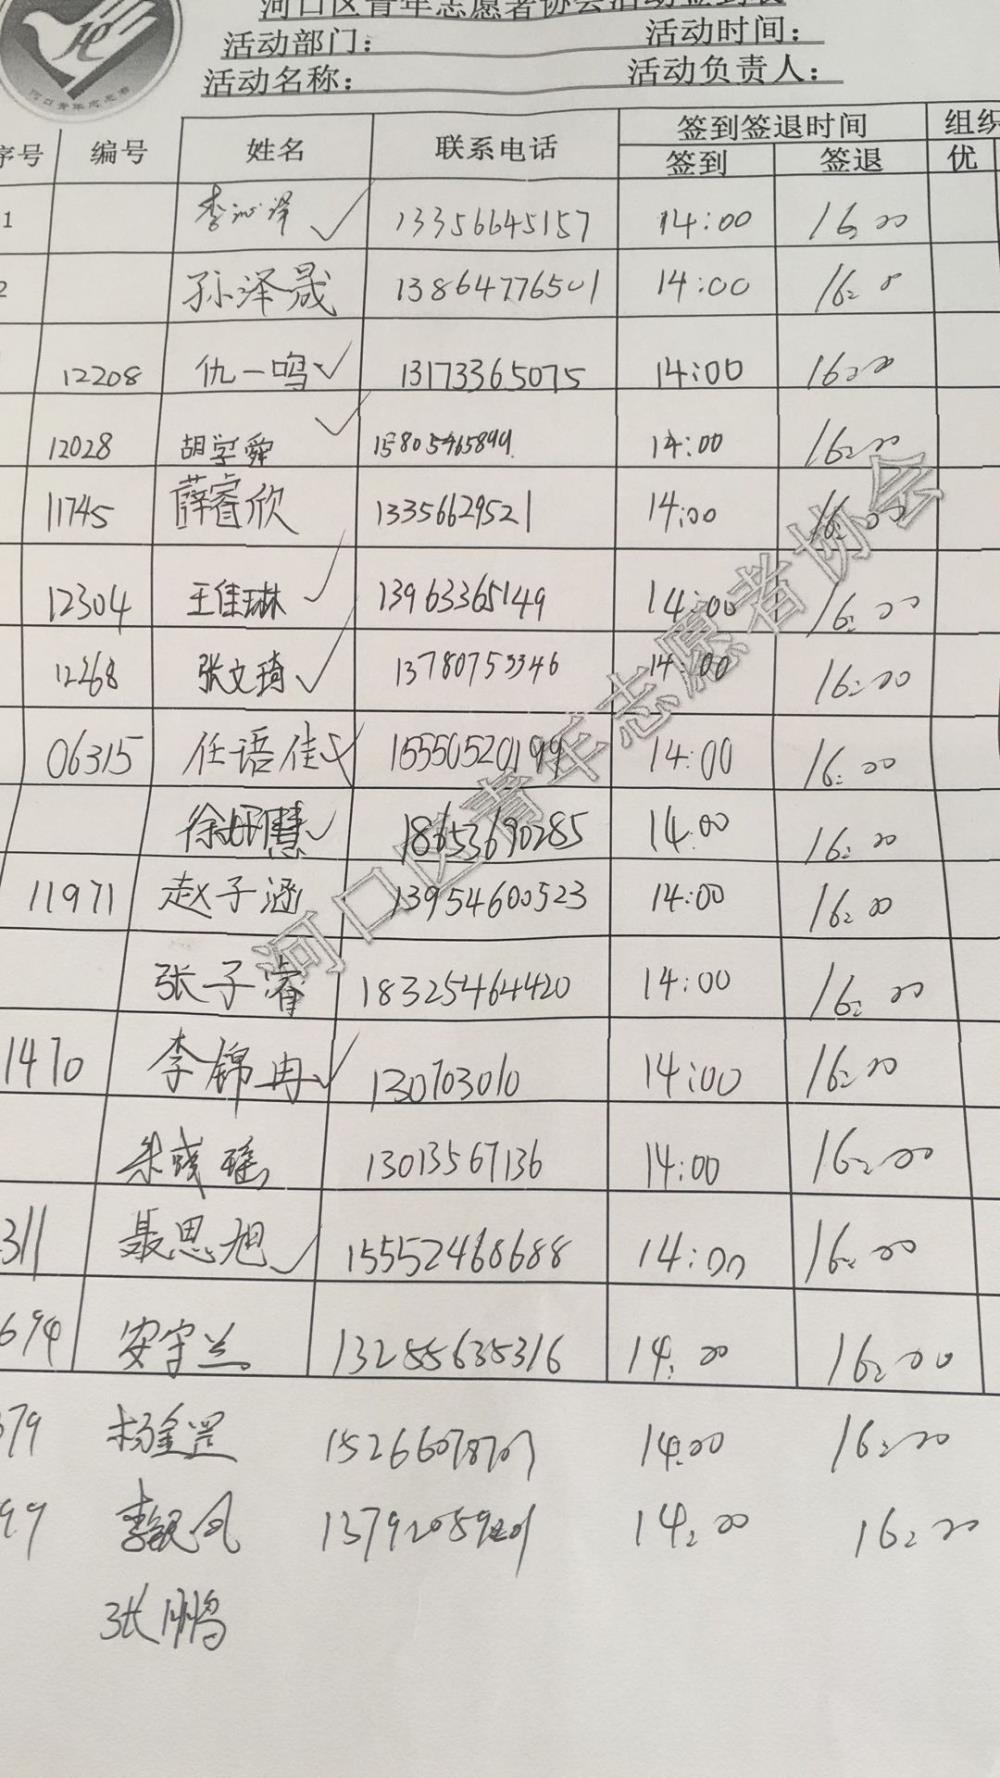 河口区青年志愿者协会活动签到表
活动部门： 活动时间：
活动名称： 活动负责人：
河口青年志愿者
序号 编号 姓名 联系电话 签到签退时间 组织
签到 签退 优
1 李沁泽 13356645157 14:00 16:00
2 孙泽晟 13864776501 14:00 16:0
12208 仇一鸣 13173365075 14:00 16:00
12028 胡学舜 15805465899 14:00 16:00
11745 薛睿欣 13356629521 14:00 16:00
12304 王佳琳 13963365149 14:00 16:00
12268 张文琦 13780753346 14:00 16:00
06315 任语佳 15550520199 14:00 16:00
徐妍慧 18653690285 14:00 16:00
11971 赵子涵 13954600523 14:00 16:00
张子睿 18325464420 14:00 16:00
1470 李锦冉 130703010 14:00 16:00
朱彧瑶 13013567136 14:00 16:00
311 聂思旭 15552468688 14:00 16:00
694 安宇兰 13255635316 14:00 16:00
379 杨金罡 15266078707 14:00 16:00
99 李银凤 13792089201 14:00 16:00
张鹏
河口区青年志愿者协会